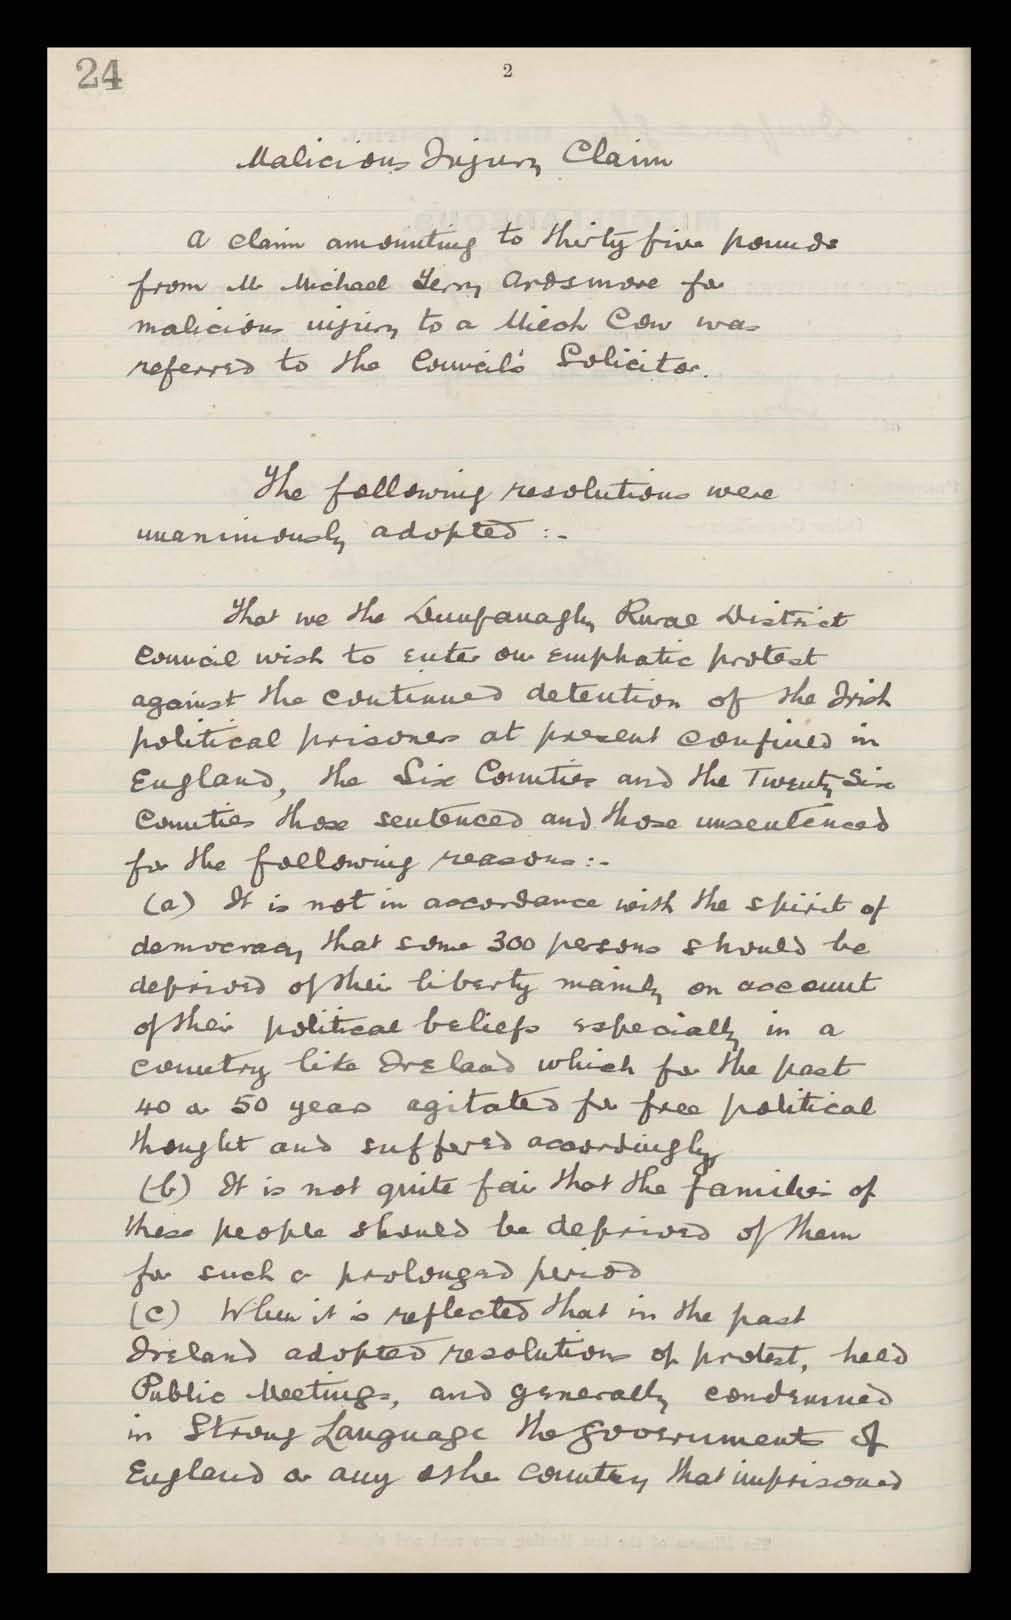 24
2
Malicious Injury Claim
A claim amounting to thirty five pounds
from Mr Michael Ferry Ardsmore for
malicious injury to a Milch Cow was
referred to the Council's Solicitor.
The following resolutions were
unanimously adopted :-
That we the Dunfanaghy Rural District
Council wish to enter our emphatic protest
against the continued detention of the Irish
political prisoners at present confined in
England, the Six Counties and the Twenty Six
Counties those sentenced and those unsentenced
for the following reasons:-
(a) It is not in accordance with the spirit of
democracy that some 300 persons should be
deprived of their liberty mainly on account
of their political beliefs especially in a
country like Ireland which for the past
40 or 50 years agitated for free political
thought and suffered accordingly
(b) It is not quite fair that the families of
these people should be deprived of them
for such a prolonged period
(c) When it is reflected that in the past
Ireland adopted resolutions of protest, held
Public Meetings, and generally condemned
in Strong Language the Governments of
England or any other country that imprisoned